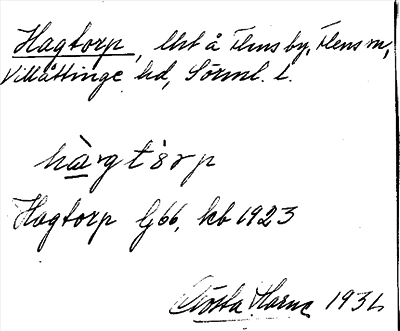 Hagtorp, lht å Flens by, Flens sn,
Villåttinge hd, Sörml. l.
hàgtòrp
Hagtorp G66, kb 1923
Gösta Harne 1931